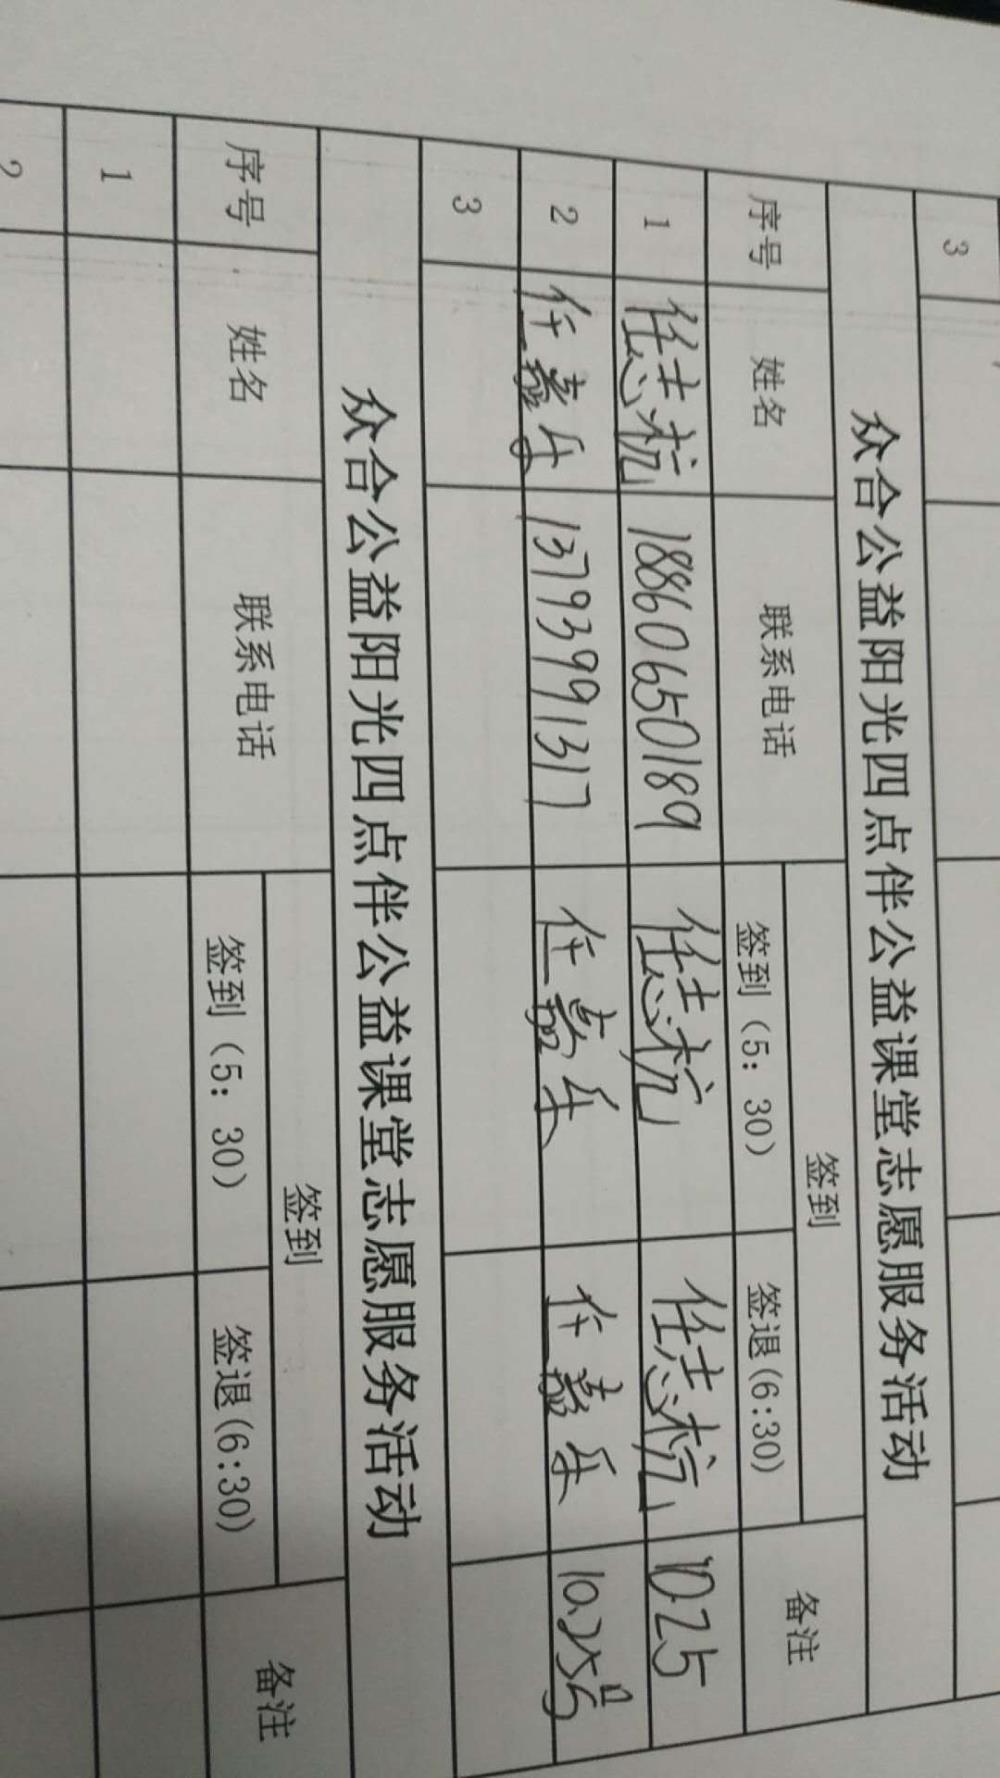 3
众合公益阳光四点伴公益课堂志愿服务活动
序号 姓名 联系电话 签到 备注
签到（5：30） 签退(6:30)
1 任志杭 18860650189 任志杭 任志杭 1025
2 任嘉乐 13793991317 任嘉乐 任嘉乐 10.25号
3
众合公益阳光四点伴公益课堂志愿服务活动
序号 姓名 联系电话 签到 备注
签到（5：30） 签退(6:30)
1
2